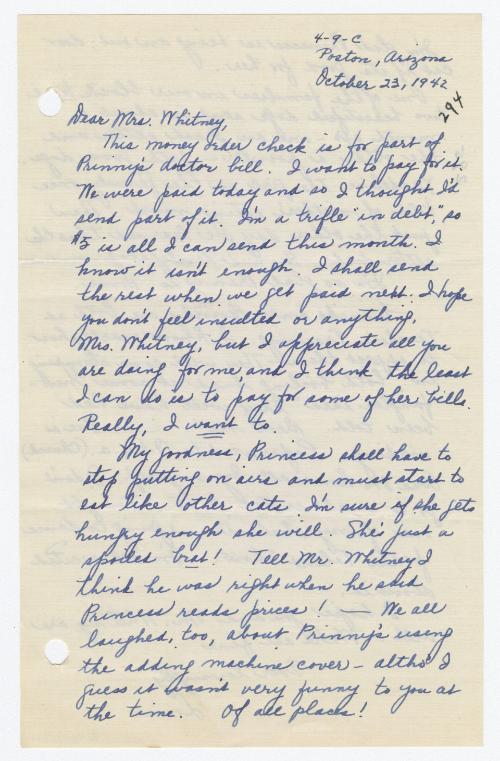 4-9-C
Poston, Arizona
October 23, 1942
294
Dear Mrs. Whitney,
This money order check is for part of
Prinny's doctor bill. I want to pay for it.
We were paid today and so I thought I'd
send part of it. I'm a trifle "in debt," so
$5 is all I can send this month. I
know it isn't enough. I shall send
the rest when we get paid next. I hope
you don't feel insulted or anything,
Mrs. Whitney, but I appreciate all you
are doing for me and I think the least
I can do is to pay for some of her bills.
Really, I want to.
My goodness, Princess shall have to
stop putting on airs and must start to
eat like other cats. I'm sure if she gets
hungry enough she will. She's just a
spoiled brat! Tell Mr. Whitney I
think he was right when he said
Princess reads prices! — We all
laughed, too, about Prinny's using
the adding machine cover – altho' I
guess it wasn't very funny to you at
the time. Of all places!